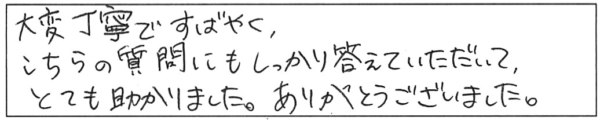 大変丁寧ですばやく,
こちらの質問にもしっかり答えていただいて,
とても助かりました。ありがとうございました。